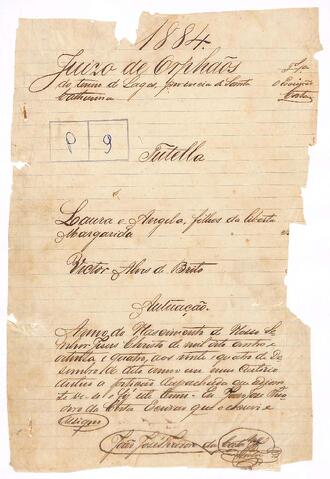 1884.
Juizo de Orphaõs
do termo de Lages, provincia de Santa
Catharina
O Escrivão
P 9
Tutella
Laura e Angela, filhas da liberta
Margarida
Victor Alves de Brito
Autuação.
Anno do Nascimento de Nosso Se
nhor Jesus Christo de mil oito centos e
oitenta e quatro, aos vinte e quatro de De
zembro do dito anno em meu cartorio
autuo a petição despachada que adian
te se vê; do que fiz este
da Costa Escrivão que o escrevi e
assigno
João José Theodoro da Costa